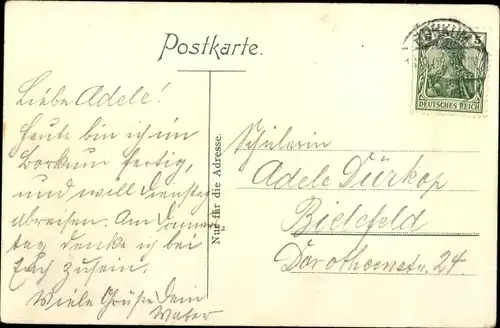 Postkarte.
BORKUM
5
DEUTSCHES REICH
Liebe Adele!
Heute bin ich in
Borkum fertig,
und will Dienstag
abreisen. Am Donners-
tag denke ich bei
Euch zu sein.
Viele Grüße Dein
Vater
Nur für die Adresse.
Schülerin
Adele Dürkop
Bielefeld
Dorotheenstr. 24